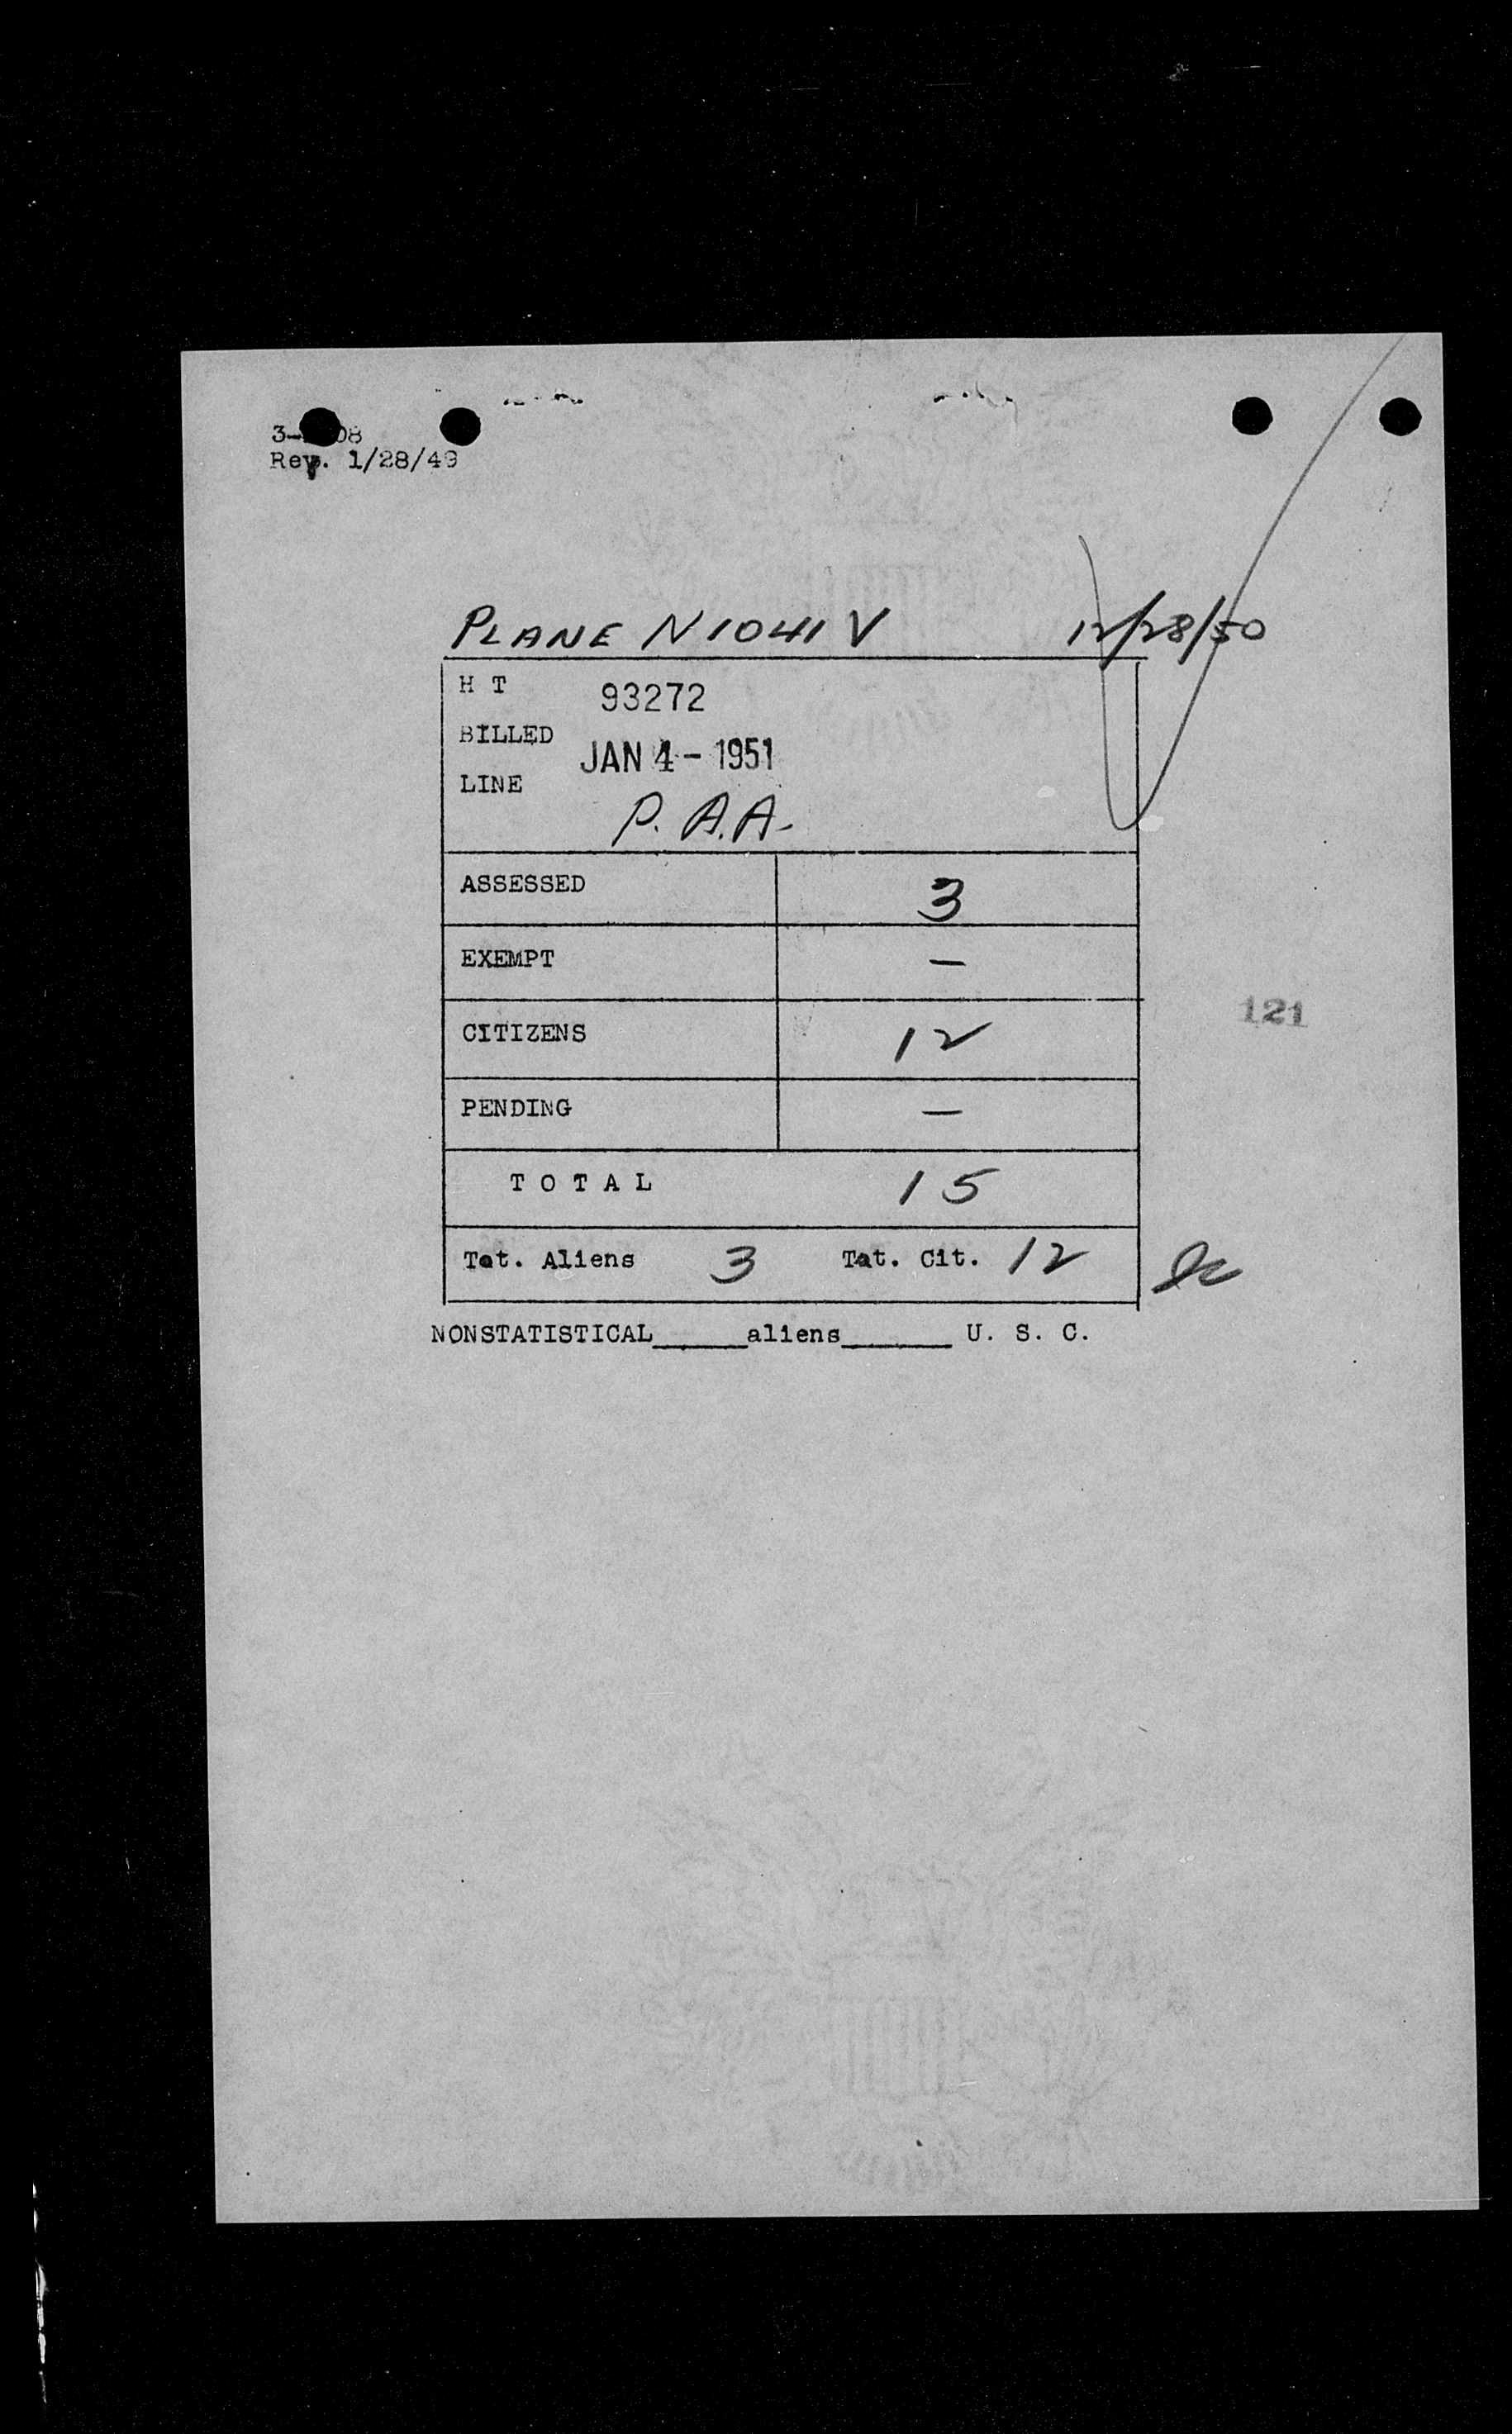 Rev. 1/28/49
PLANE N1041V 12/28/50
H T 93272
BILLED JAN 4 - 1951
LINE P. A.A.
ASSESSED 3
EXEMPT —
CITIZENS 12
121
PENDING —
T O T A L 15
Tot. Aliens 3 Tot. Cit. 12
NONSTATISTICAL_____aliens______ U. S. C.